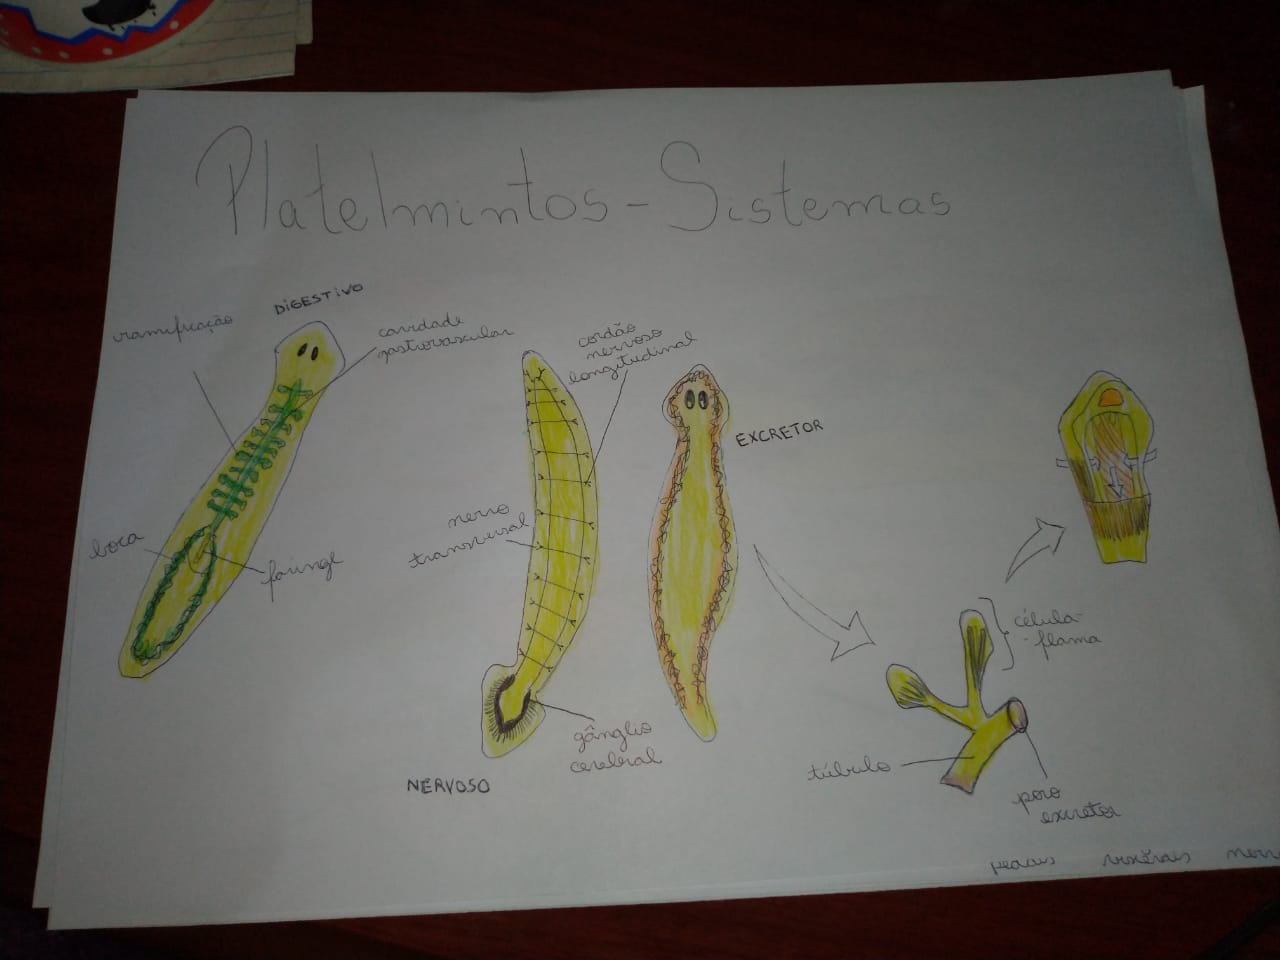 Platelmintos - Sistemas
DIGESTIVO
ramificação
cavidade
gastrovascular
boca
faringe
cordão
nervoso
longitudinal
nervo
transversal
gânglio
cerebral
NERVOSO
EXCRETOR
célula-
-flama
túbulo
poro
excretor
pedais viscerais